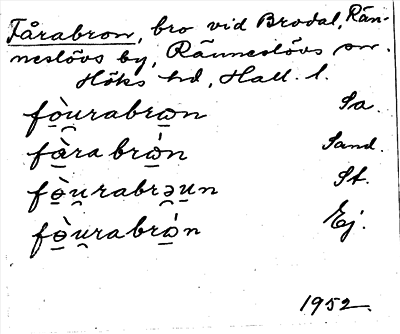 Fårabron, bro vid Brodal, Rän-
neslövs by, Ränneslövs sn.
Höks hd, Hall. l.
fò̖u̯rabrωn Sa.
fὰrabrὼn Sand.
fɵ̀u̯rabrə̯un St.
fɵ̀u̯rabrὼn Ej.
1952.